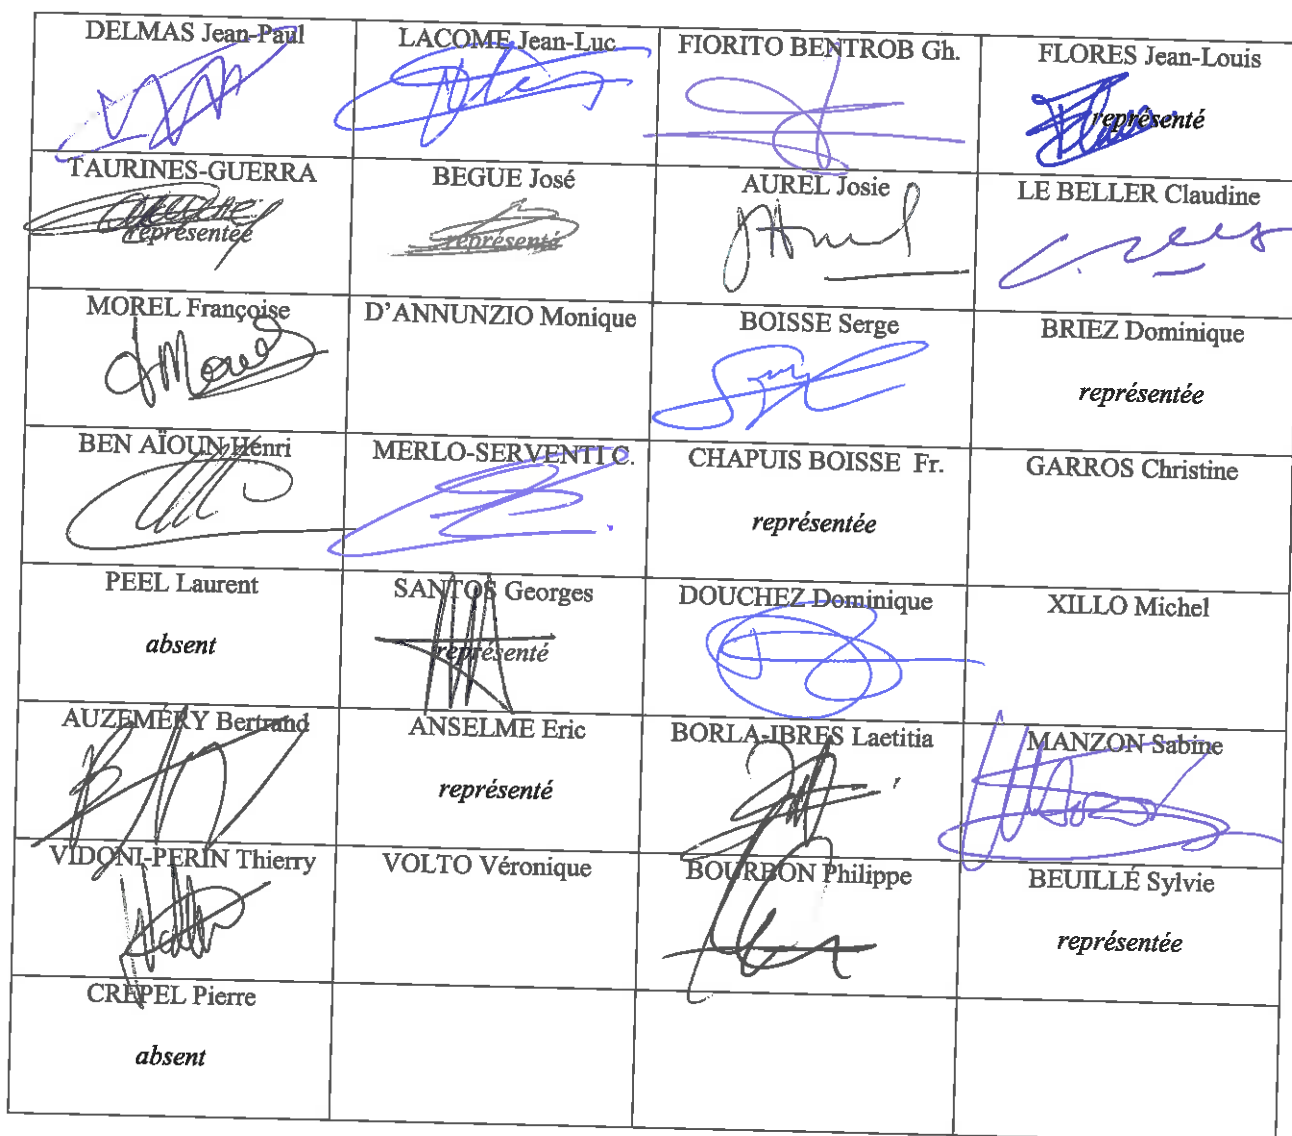 DELMAS Jean-Paul
LACOME Jean-Luc
FIORITO BENTROB Gh.
FLORES Jean-Louis
représenté
TAURINES-GUERRA
représentée
BEGUE José
représenté
AUREL Josie
LE BELLER Claudine
MOREL Françoise
D'ANNUNZIO Monique
BOISSE Serge
BRIEZ Dominique
représentée
BEN AÏOUN Henri
MERLO-SERVENTI C.
CHAPUIS BOISSE Fr.
représentée
GARROS Christine
PEEL Laurent
absent
SANTOS Georges
représenté
DOUCHEZ Dominique
XILLO Michel
AUZEMÉRY Bertrand
ANSELME Eric
représenté
BORLA-IBRES Laetitia
MANZON Sabine
VIDONI-PERIN Thierry
VOLTO Véronique
BOURBON Philippe
BEUILLÉ Sylvie
représentée
CREPEL Pierre
absent